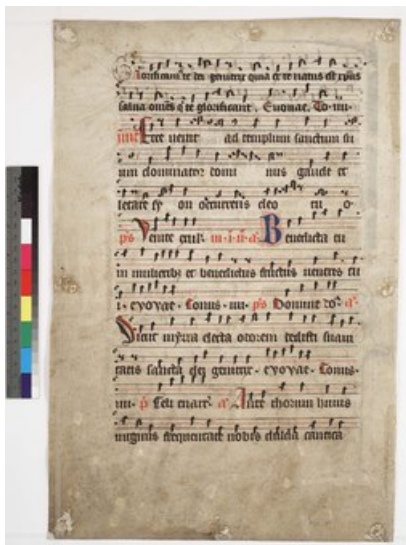 Glorificamus te dei genitrix quia ex te natus est xpus
salua omēs q̄ te glorificant. Euouae. To. iiii
Ecce uenit ad templum sanctum su
um dominator domi nus gaude et
letare sy on occurrens deo tu o
p̄s Venite exul. a Benedicta tu
in mulieribꝫ et benedictus fructus uentris tu
i. euouae. Tonus. iiii. p̄s Domine do. a
Sicut myrra electa odorem dedisti suaui
tatis sancta dei genitrix. euouae. Tonus.
iiii. p̄ Celi enarr. a Ante thorum huius
uirginis frequentate nobis dulcia cantica